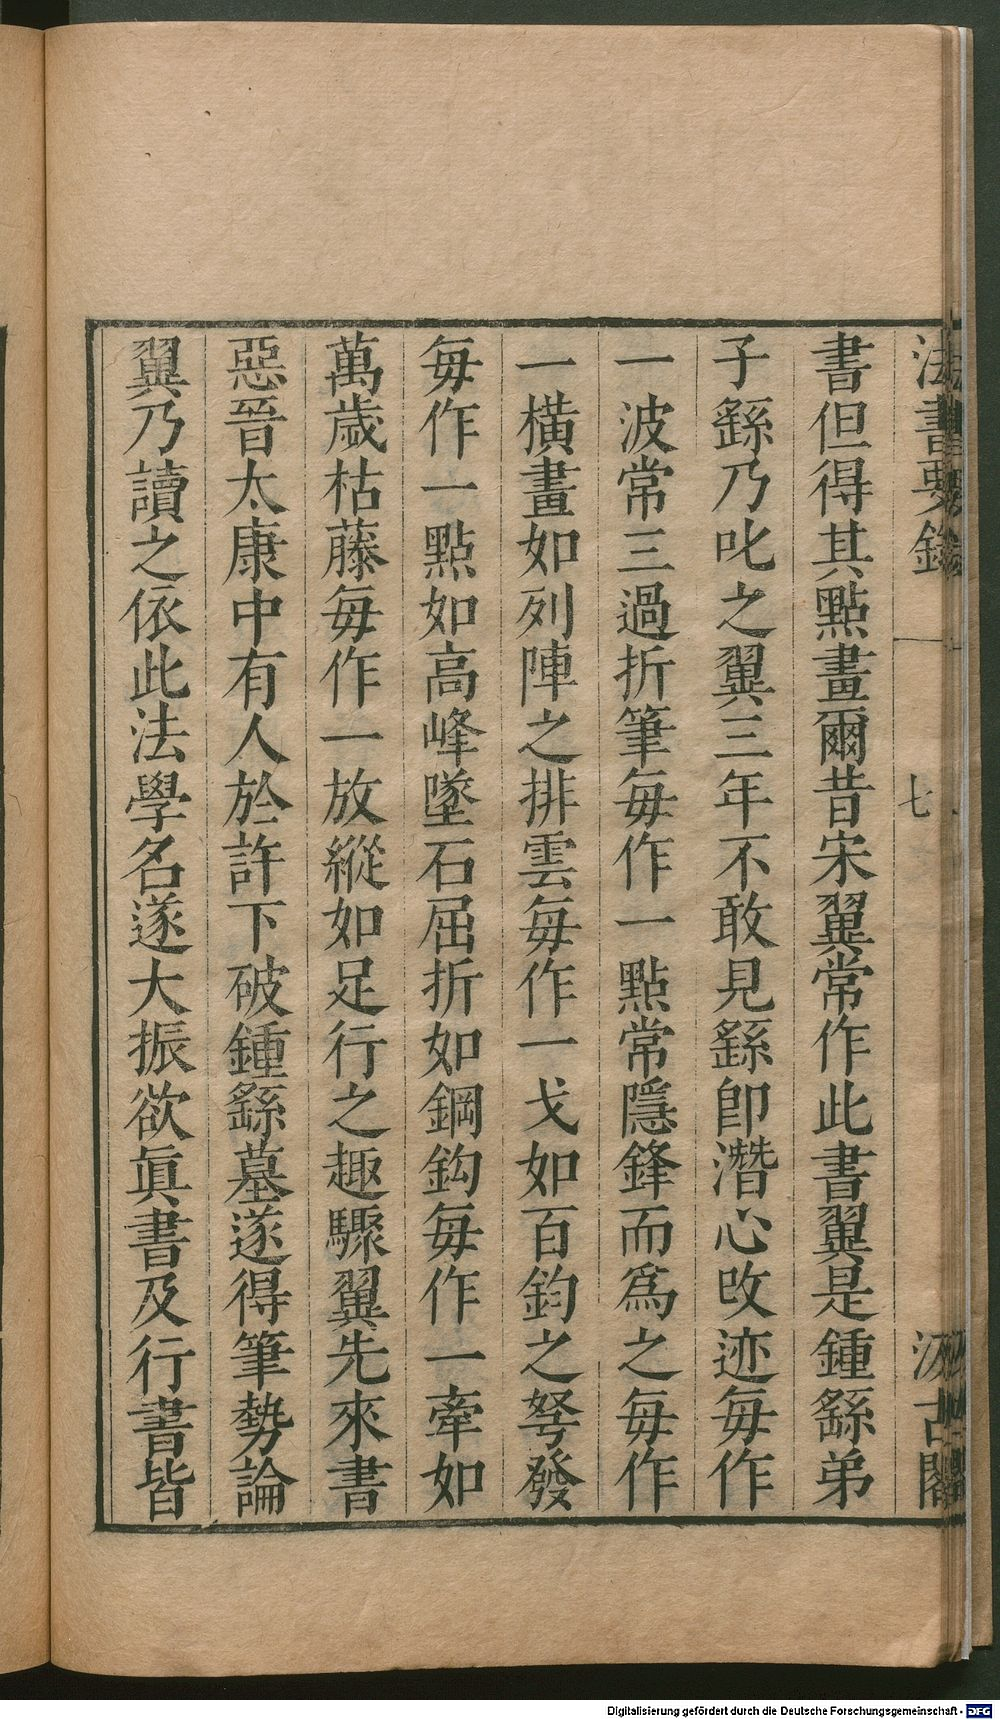 法書要錄
七
汲古閣
書但得其點畫爾昔宋翼常作此書翼是鍾繇弟
子繇乃叱之翼三年不敢見繇卽潛心改迹每作
一波常三過折筆每作一點常隱鋒而爲之每作
一橫畫如列陣之排雲每作一戈如百鈞之弩發
每作一點如高峰墜石屈折如鋼鈎每作一牽如
萬歲枯藤每作一放縱如足行之趣驟翼先來書
惡晉太康中有人於許下破鍾繇墓遂得筆勢論
翼乃讀之依此法學名遂大振欲眞書及行書皆
Digitalisierung gefördert durch die Deutsche Forschungsgemeinschaft - DFG